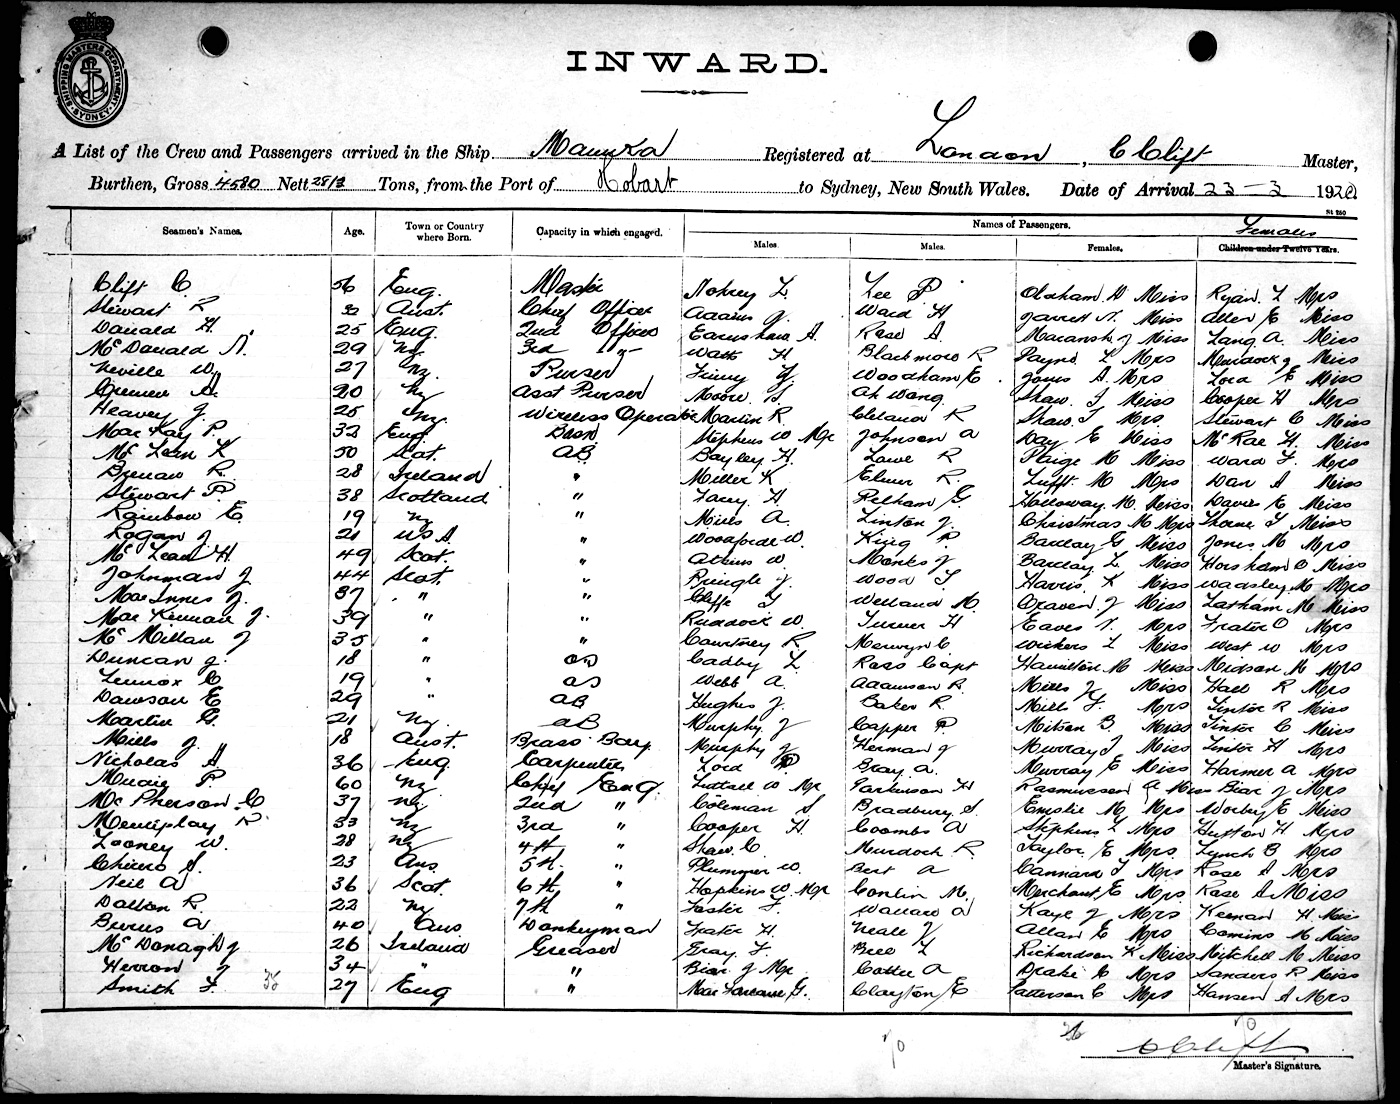 SHIPPING MASTERS DEPARTMENT SYDNEY
INWARD.
A List of the Crew and Passengers arrived in the Ship Manuka Registered at London, C Clift Master,
Burthen, Gross 4580 Nett 2813 Tons, from the Port of Hobart to Sydney, New South Wales. Date of Arrival 23-3 1920.
St 250
Seamen's Names. Age. Town or Country where Born. Capacity in which engaged. Names of Passengers. Females
Males. Males. Females. Children under Twelve Years.
Clift C. 56 Eng. Master L Lee P Oldham D Miss Ryan L Mrs
Stewart R Aust. Chief Officer Adams J. Ward H Jarrett N. Miss Allen E Miss
Donald H. 25 Eng. 2nd Officer Earnshaw A. Rose A. J Miss Lang A. Miss
McDonald N. 29 NZ 3rd " Watt H Blackmore R Payne L Mrs Murdock J Miss
Neville W. 27 NZ. Purser Woodham E. Jones A Mrs Lord E Miss
A. 20 NZ Asst Purser Moore S. Ah Wang Shaw. J Miss Cooper H Mrs
Heavey J. 25 NZ. Wireless Operator Martin R. Cleland R Shaw. J Mrs Stewart C Miss
MacKay P. 32 Eng. Bosn Stephens W Mr Johnson A Day E Miss McRae H. Miss
McLean K 50 Scot. AB Bayley H. Lowe R Paige M Miss Ward F. Mrs
R. 28 Ireland " Miller K Elmer R. Tufft M Mrs Dan A Miss
Stewart P. 38 Scotland " Lacey H Pelham G. Holloway M. Miss Davis E Miss
Rainbow E. 19 NZ " Mills A. Linton J. Christmas M Mrs Thorne J Miss
Logan J 21 USA " W. King P. Barclay G Miss Jones M Mrs
McLean H. 49 Scot. " Atkins W. Monks J Barclay L. Miss Horsham O Miss
Johnman J 44 Scot. " Pringle J. Wood J Harris K Miss Wadsley M Mrs
MacInnes J. 37 " " Cliffe J Welland M. Craven J Miss Latham M Miss
MacKinnan J. 39 " " Ruddock W. Turner H Eaves V. Mrs Frater O Mrs
McMillan J 35 " " Courtney R. Merwyn C. Wickens L Miss West W Mrs
Duncan J. 18 " OS Cadby L Ross Capt Hamilton M Miss Midson M Mrs
Lennox C 19 " OS Webb A. Adamson R. Mills J Miss Hall R Mrs
Dawson E 29 " AB Hughes J. Baker R. Mills F. Mrs Linton R Miss
Martin G. 21 NZ. AB Murphy J Capper P. Mitson B. Miss Linton C Miss
Mills J. 18 Aust. Brass Boy. Murphy J Herman J Murray J. Miss Linton H Mrs
Nicholas H 36 Eng Carpenter Lord P Gray. A. Murray E Miss Harmer A Mrs
Mudie P. 60 NZ Chief Eng. Luttrell W Mr Parkinson H Rasmussen A Miss Biar J Mrs
McPherson C 37 NZ 2nd " Coleman S Bradbury S. Emslie M Mrs Worby E Miss
Mentiplay R. 33 NZ 3rd " Cooper H Coombs A Stephens L Mrs Hutton H Mrs
Looney W. 28 NZ 4th " Shaw. C. Murdoch R. Taylor E Mrs Lynch B Mrs
S. 23 Aus. 5th. " Plummer W. Bert A Cannard J Mrs Rose A Mrs
Neil A 36 Scot. 6th " Hopkins W. Mr Conlin M. Merchant E Mrs Rose A Miss
Dalton R. 22 NZ 7th " Foster F. Wallard A Kaye J Mrs Keenan H. Miss
Burns A. 40 Aus Donkeyman Frater H. Neale J Allan E Mrs Comins M Miss
McDonagh J 26 Ireland Greaser Gray F. Bell L Richardson K Miss Mitchell M Miss
Herron J 34 " " Biar J Mr A Drake C Mrs Sanders P Miss
Smith F. 27 Eng " MacFarlane G. Clayton E Patterson C Mrs Hansen A Mrs
70 70
C Clift
Master's Signature.